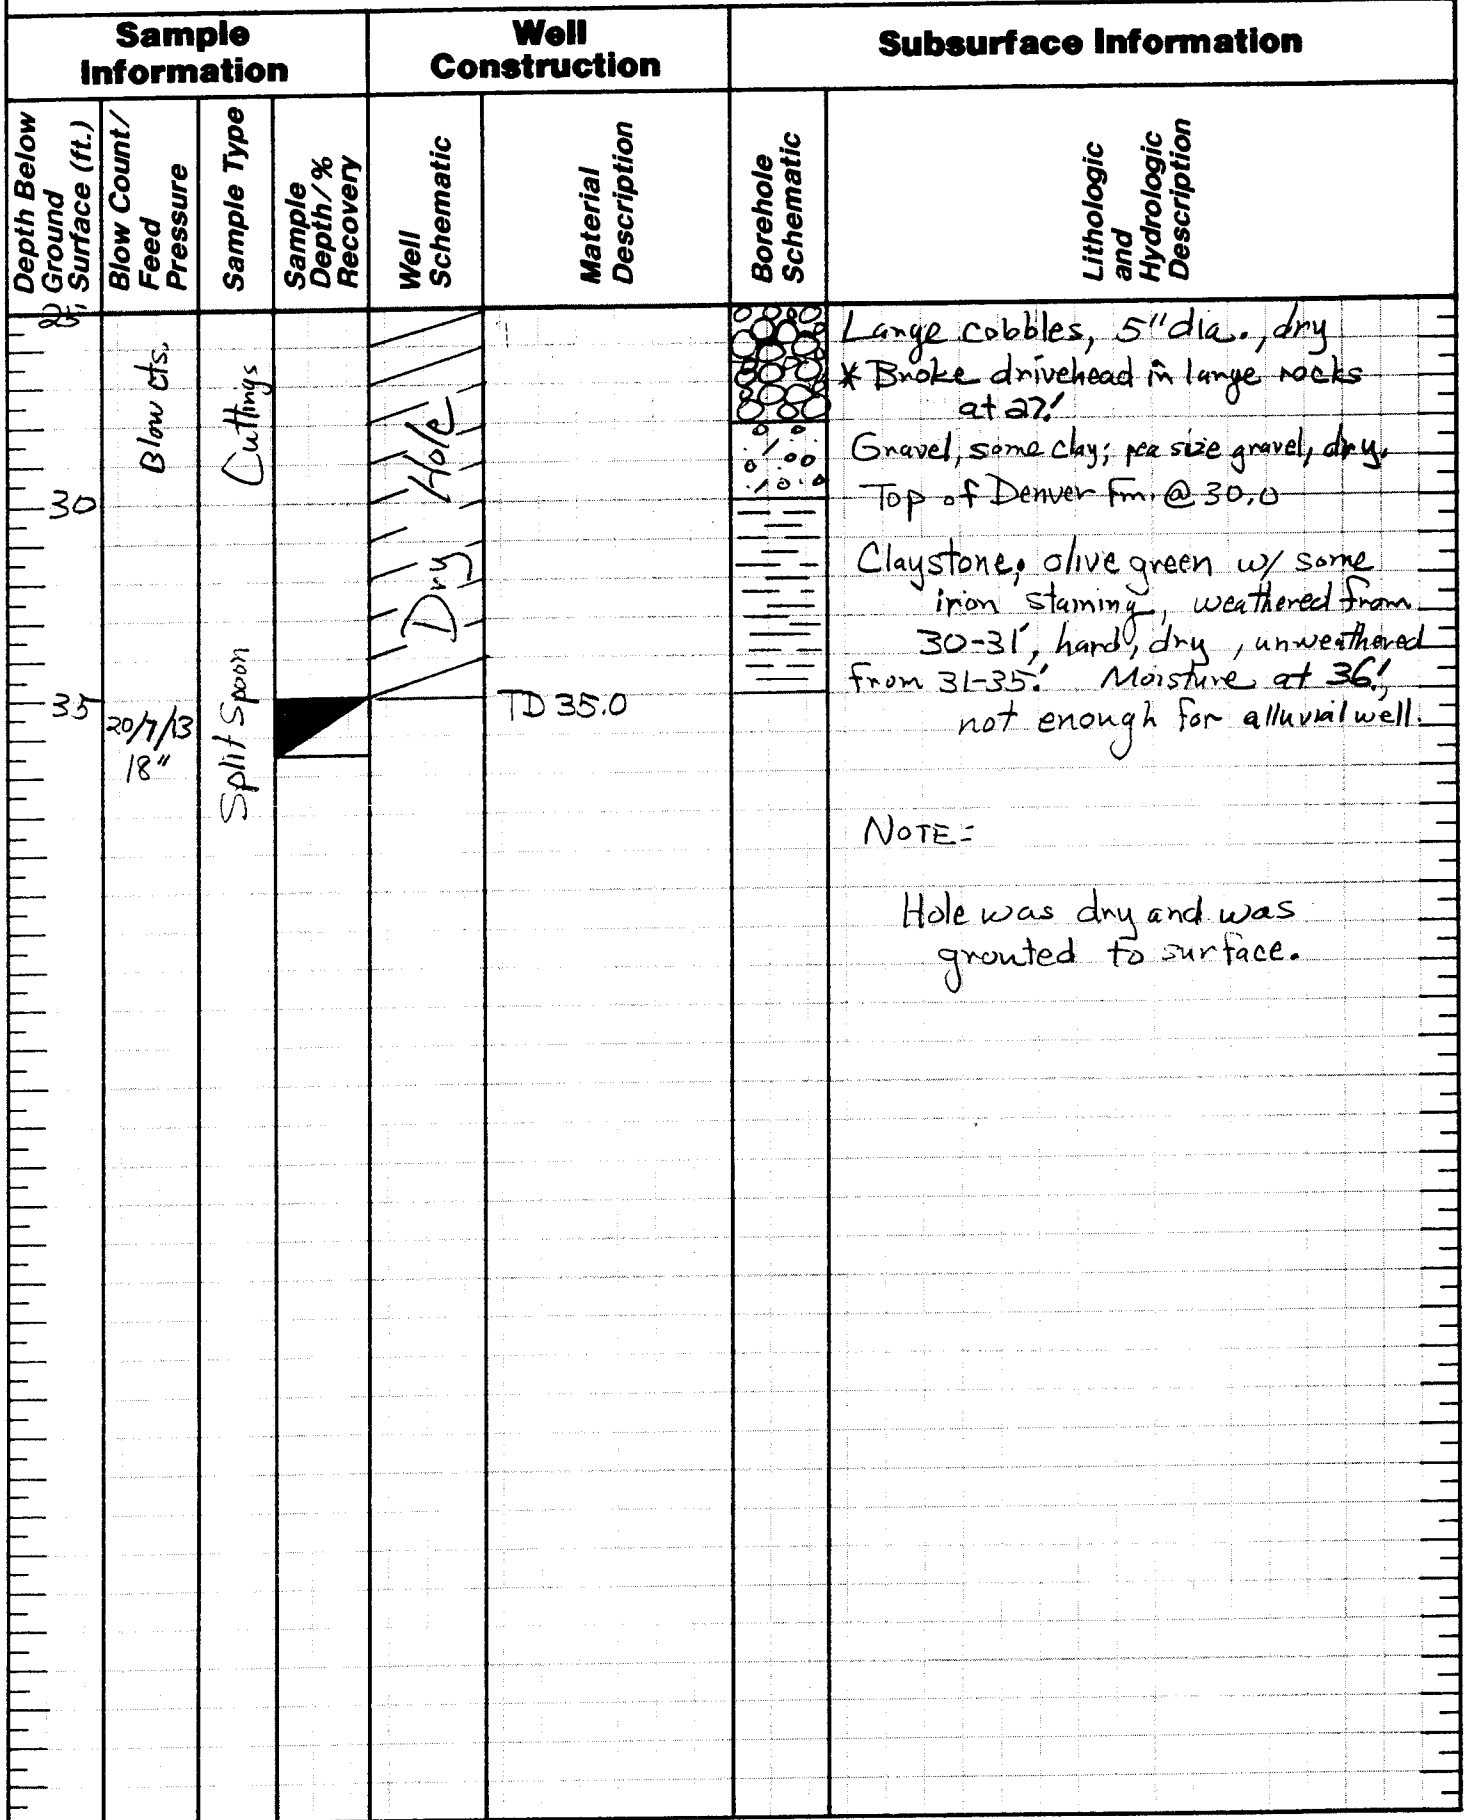 Sample
Information
Well
Construction
Subsurface Information
Depth Below
Ground
Surface (ft.)
Blow Count/
Feed
Pressure
Sample Type
Sample
Depth/%
Recovery
Well
Schematic
Material
Description
Borehole
Schematic
Lithologic
and
Hydrologic
Description
25
Blow cts.
Cuttings
Dry Hole
Large cobbles, 5" dia., dry
* Broke drivehead in large rocks
at 27.'
Gravel, some clay; pea size gravel, dry.
30
Top of Denver Fm. @ 30.0
Claystone, olive green w/ some
iron staining, weathered from
30-31', hard, dry, unweathered
from 31-35.' Moisture at 36.',
not enough for alluvial well.
35
20/7/13
18"
Split Spoon
TD 35.0
NOTE:
Hole was dry and was
grouted to surface.